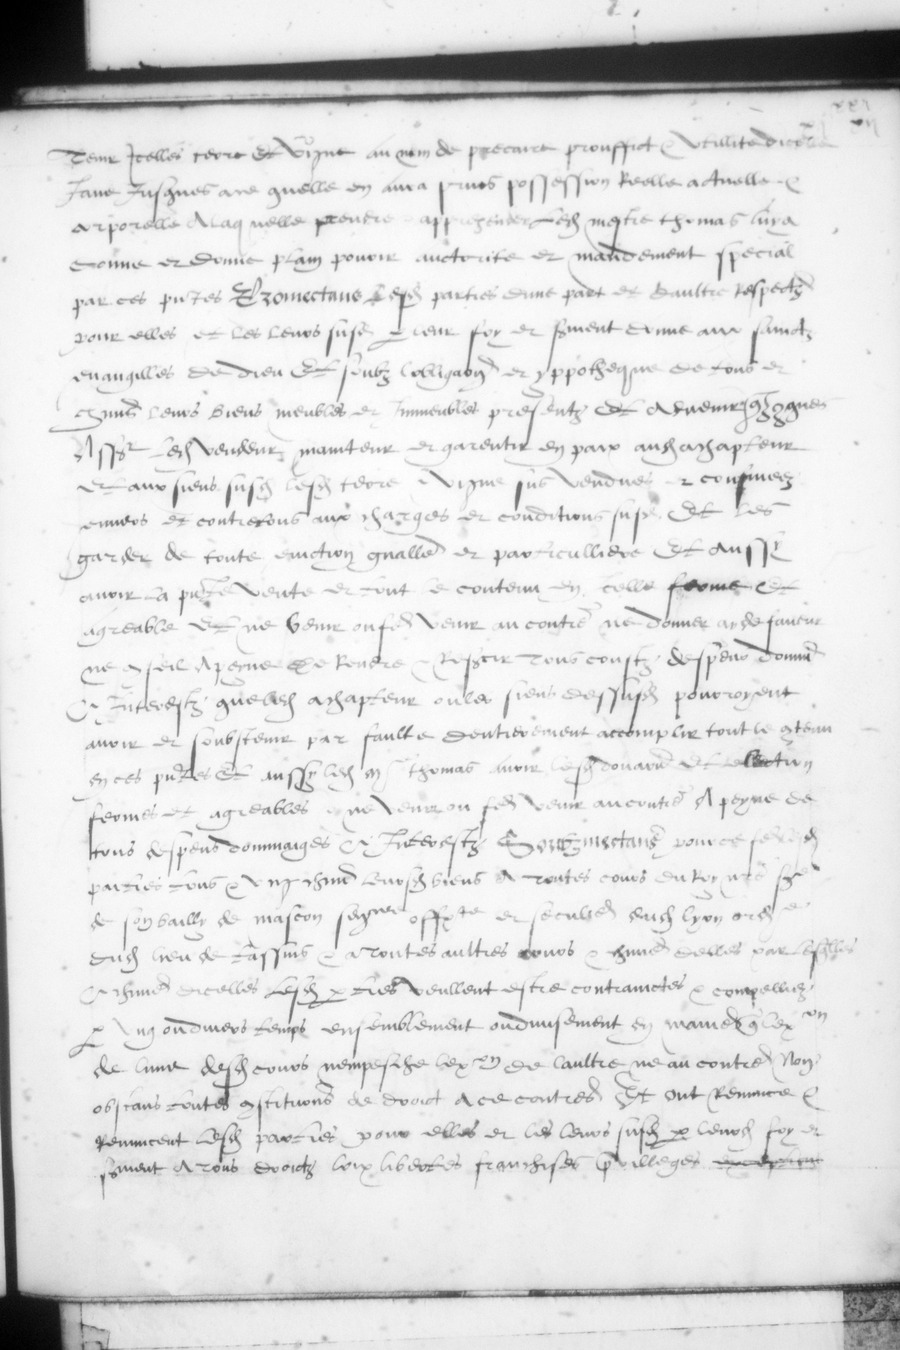 Tenir Icelles terre et vigne au nom de precaire prouffict & utillite dicelle
Jane Jusques a ce quelle en aura prins possession Reelle actuelle &
corporelle A laquelle prendre apprehender led mestre thomas luy a
donne et donne plain povoir auctorite et mandement special
par ces pntes Promectans lesd parties dune part et daultre Respect
pour elles et les leurs susd par leur foy et serment donne aux sainctz
evangilles de dieu Et soubz lobligaon et yppotheque de tous et
chuns leurs biens meubles et Immeubles presentz Et Advenir
led vendeur maintenir et garentir en paix aud achapteur
Et aux siens susd lesd terre & vigne sus vendues et confinees
envers et contre tous aux charges et conditions susd Et les
garder de toute eviction gnalle et particulliere Et Aussy
avoir la pnte vente et tout le contenu en Icelle ferme Et
agreable Et ne venir ou fere venir au contre ne donner ayde faveur
ne conseil A peyne De Rendre & Reffere Tous coustz despens dommaiges
& Interestz que led achapteur ou les siens dessusd pourroyent
avoir et soubstenir par faulte dentierement accomplir tout le contenu
en ces pntes Et aussy led me thomas avoir lesd Et election
fermes et agreables & ne venir ou fere venir au contre A peyne de
tous despens dommaiges & Interestz Soubzmectans pour ce fere lesd
parties tous & ung chun leursd biens A Toutes cours du Roy nre sire
de son bailly de mascon senesche offal et seculiere dud lyon
dud lieu de tassins & a toutes aultres cours & chune delles par lesquelles
& chune dicelles lesd parties veullent estre contrainctes & compellies
par ung ou divers temps ensemblement ou divisement en maniere que lexon
de lune desd cours nempesche lexon de laultre ne au contre Non
obstans toutes constitutions de droict A ce contre Et ont Renunce &
Renuncent lesd parties pour elles et les leurs susd par leursd foy et
serment A tous droictz loix libertes franchises previlleges